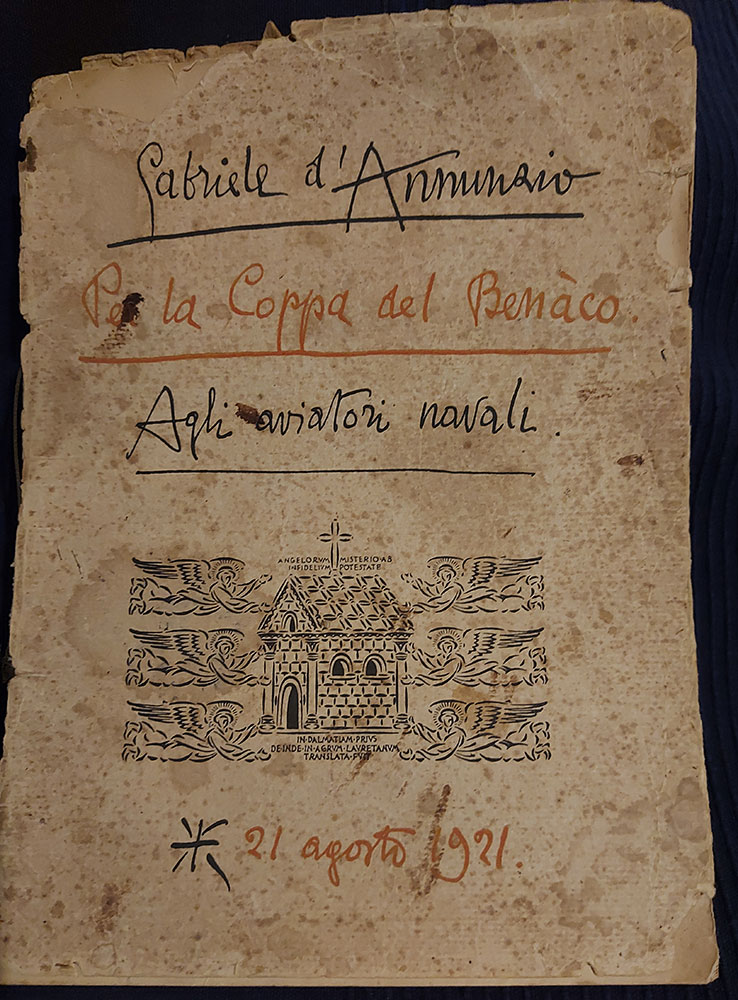 Gabriele d'Annunzio
Per la Coppa del Benàco.
Agli aviatori navali.
ANGELORVM MISTERIO·AB
INFIDELIVM POTESTATE
IN·DALMATIAM·PRIVS
DE·INDE·IN·AGRVM·LAVRETANVM
TRANSLATA·FVIT
21 agosto 1921.